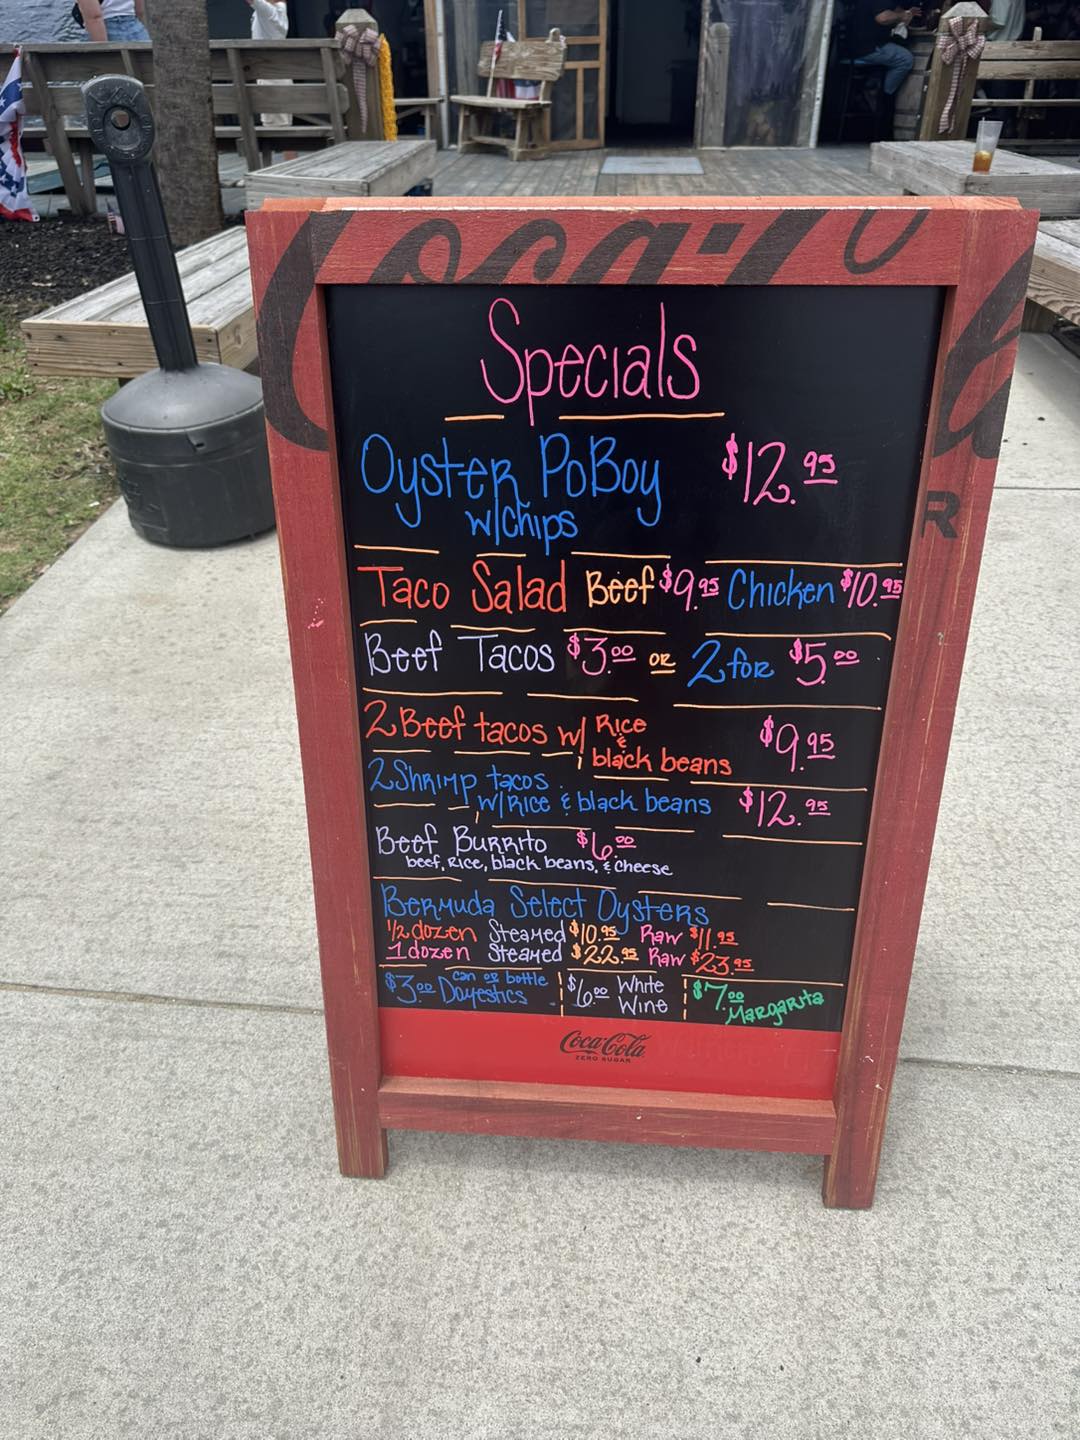 Coca-Cola
R
Specials
Oyster PoBoy $12.95
w/chips
Taco Salad Beef $9.95 Chicken $10.95
Beef Tacos $3.00 or 2 for $5.00
2 Beef tacos w/ Rice & black beans $9.95
2 Shrimp tacos
w/Rice & black beans $12.95
Beef Burrito $6.00
beef, rice, black beans, & cheese
Bermuda Select Oysters
1/2 dozen Steamed $10.95 Raw $11.95
1 dozen Steamed $22.95 Raw $23.95
$3.00 can or bottle Domestics
$6.00 White Wine
$7.00 Margarita
Coca-Cola
ZERO SUGAR